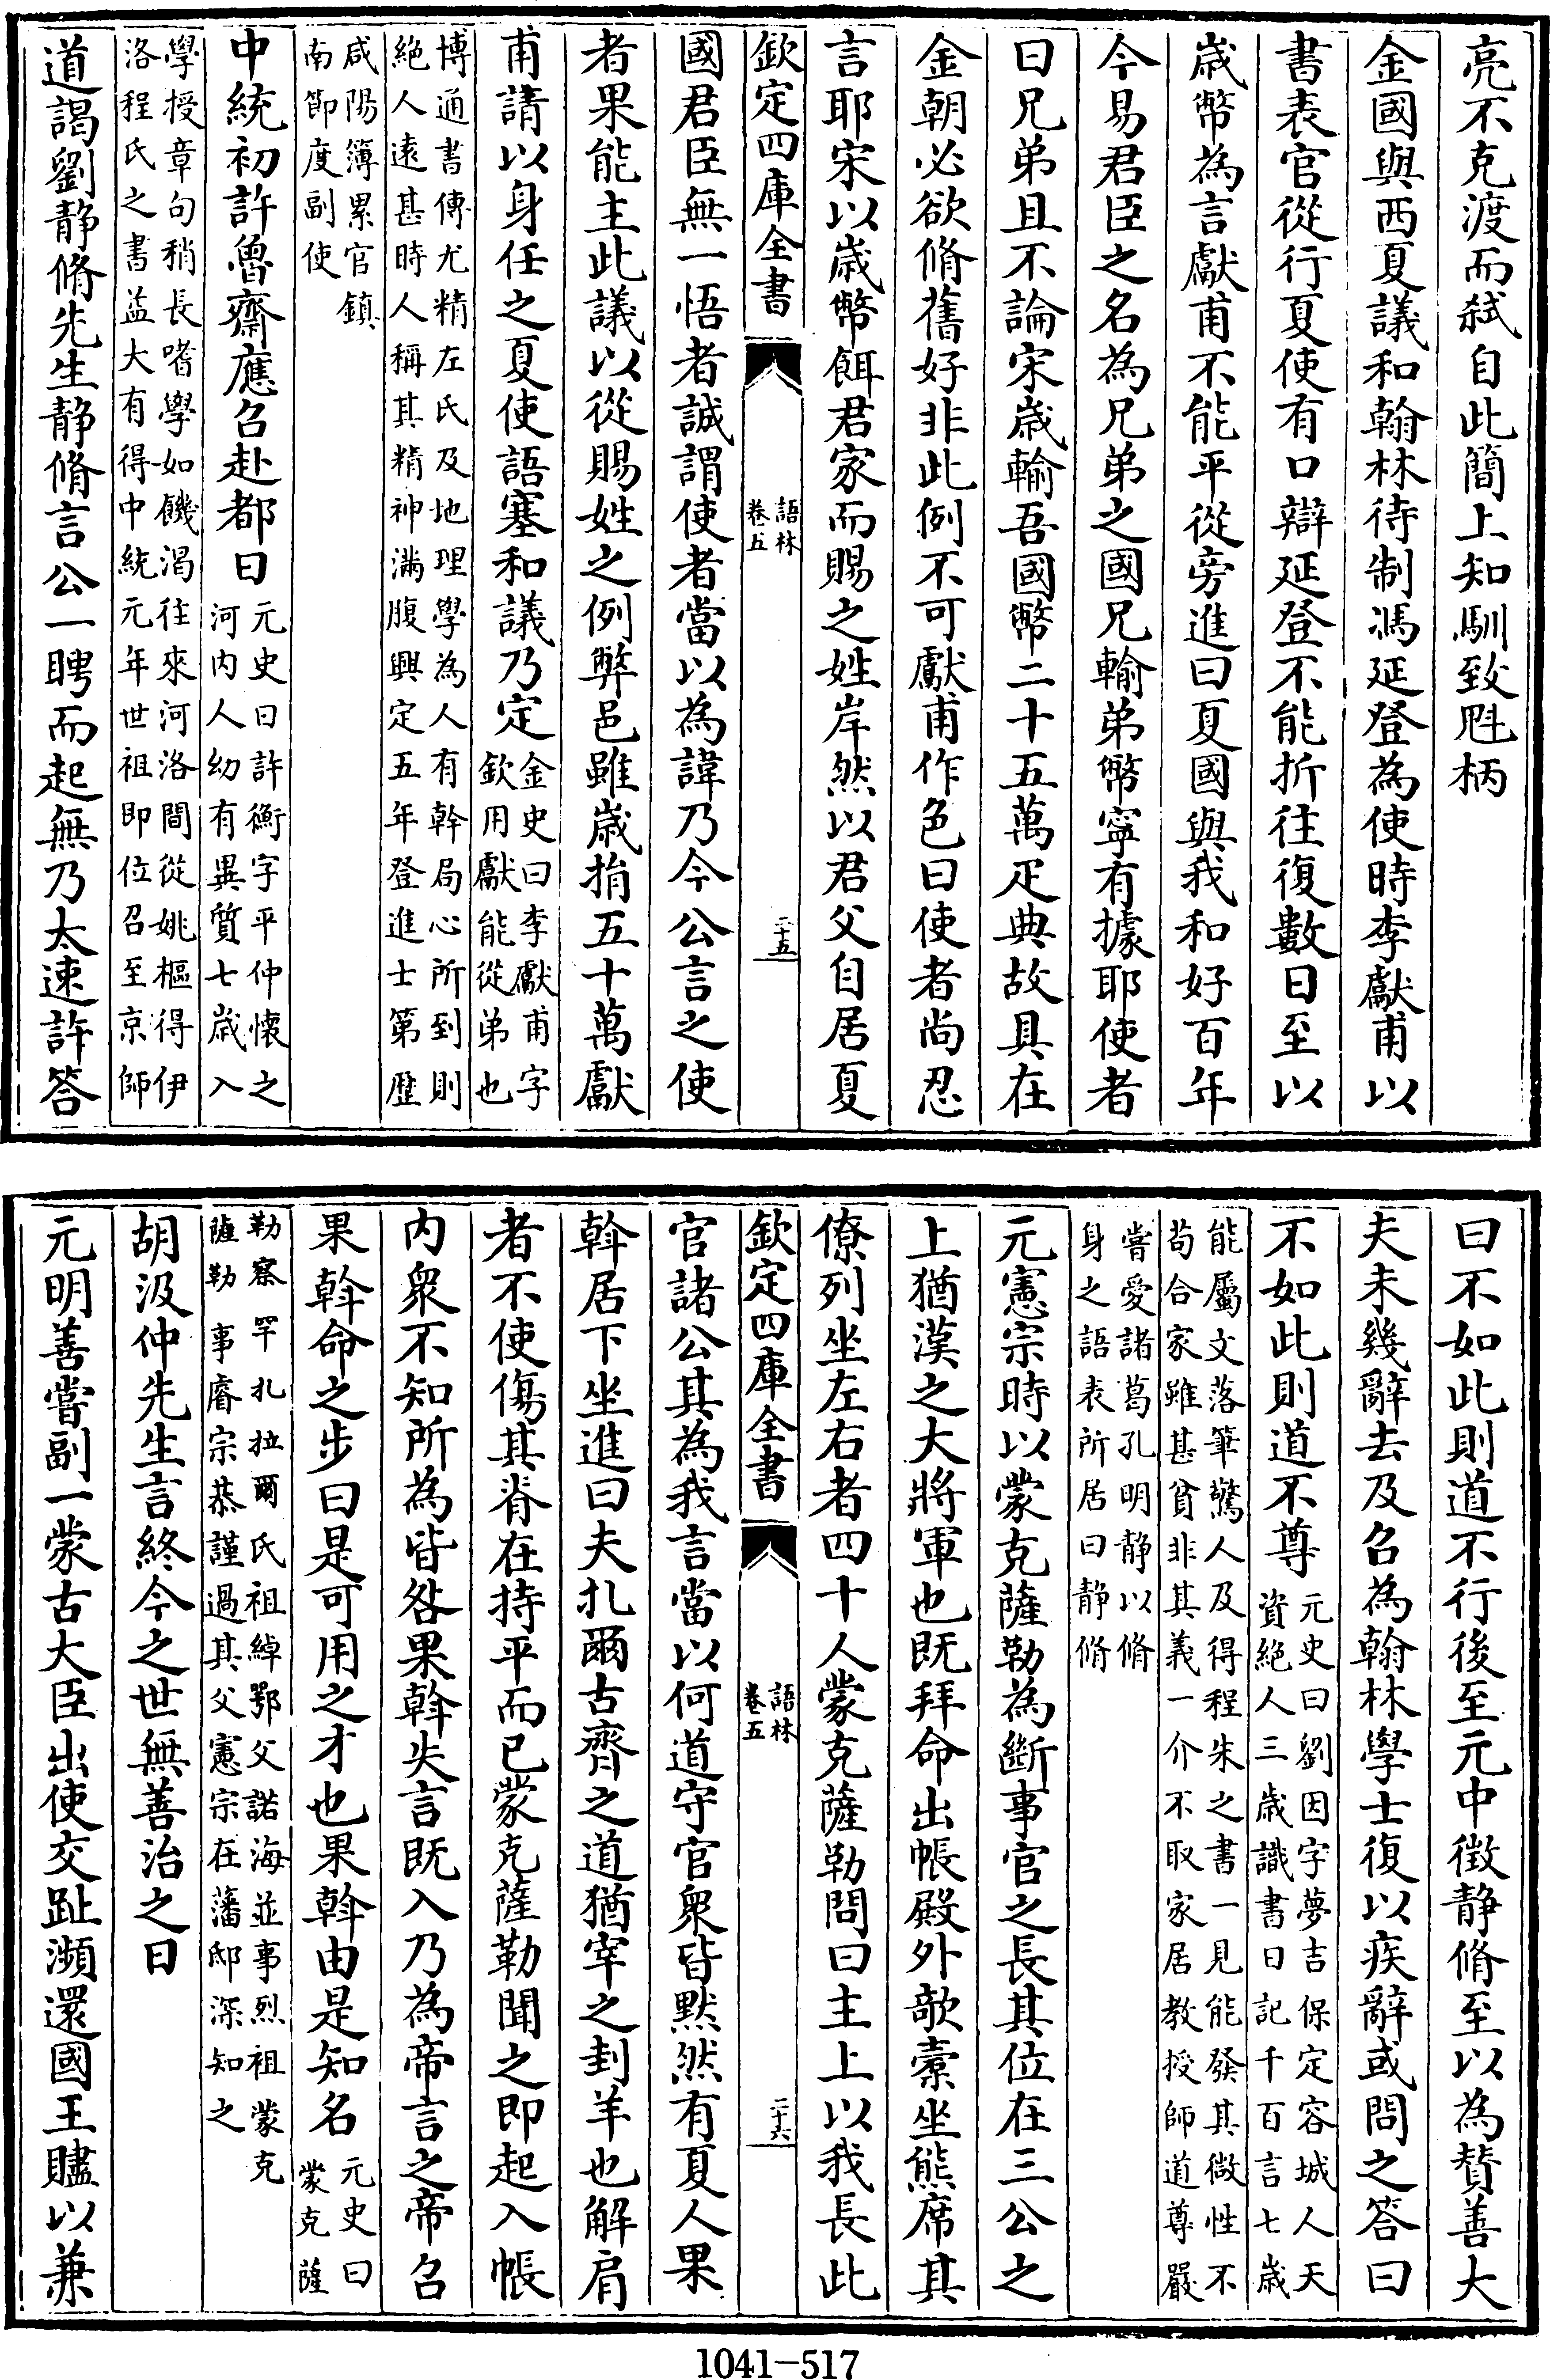 亮不克渡而弑自此簡上知馴致尅柄
金國與西夏議和翰林待制馮延登為使時李獻甫以
書表官從行夏使有口辯延登不能折往復數日至以
歲幣為言獻甫不能平從旁進曰夏國與我和好百年
今易君臣之名為兄弟之國兄輸弟幣寧有據耶使者
曰兄弟且不論宋歲輸吾國幣二十五萬疋典故具在
金朝必欲脩舊好非此例不可獻甫作色曰使者尚忍
言耶宋以歲幣餌君家而賜之姓岸然以君父自居夏
欽定四庫全書
語林
卷五
二十五
國君臣無一悟者誠謂使者當以為諱乃今公言之使
者果能主此議以從賜姓之例弊邑雖歲捐五十萬獻
甫請以身任之夏使語塞和議乃定
金史曰李獻甫字
欽用獻能從弟也
博通書傳尤精左氏及地理學為人有幹局心所到則
絕人遠甚時人稱其精神滿腹興定五年登進士第歷
咸陽簿累官鎮
南節度副使
中統初許魯齋應召赴都日
元史曰許衡字平仲懷之
河内人幼有異質七歲入
學授章句稍長嗜學如饑渴往來河洛間從姚樞得伊
洛程氏之書益大有得中統元年世祖即位召至京師
道謁劉静脩先生静脩言公一聘而起無乃太速許答
曰不如此則道不行後至元中徴静脩至以為賛善大
夫未幾辭去及召為翰林學士復以疾辭或問之答曰
不如此則道不尊
元史曰劉因字夢吉保定容城人天
資絶人三歲識書日記千百言七歲
能屬文落筆驚人及得程朱之書一見能發其微性不
苟合家雖甚貧非其義一介不取家居教授師道尊嚴
嘗愛諸葛孔明静以脩
身之語表所居曰静脩
元憲宗時以蒙克薩勒為斷事官之長其位在三公之
上猶漢之大將軍也既拜命出帳殿外欹槖坐熊席其
僚列坐左右者四十人蒙克薩勒問曰主上以我長此
欽定四庫全書
語林
卷五
二十六
官諸公其為我言當以何道守官衆皆默然有夏人果
斡居下坐進曰夫扎爾古齊之道猶宰之刲羊也解肩
者不使傷其脊在持平而已蒙克薩勒聞之即起入帳
内衆不知所為皆咎果斡失言既入乃為帝言之帝召
果斡命之步曰是可用之才也果斡由是知名
元史曰
蒙克薩
勒察罕扎拉爾氏祖綽鄂父諾海並事烈祖蒙克
薩勒事睿宗恭謹過其父憲宗在藩邸深知之
胡汲仲先生言終今之世無善治之日
元明善嘗副一蒙古大臣出使交趾瀕還國王贐以兼
1041-517